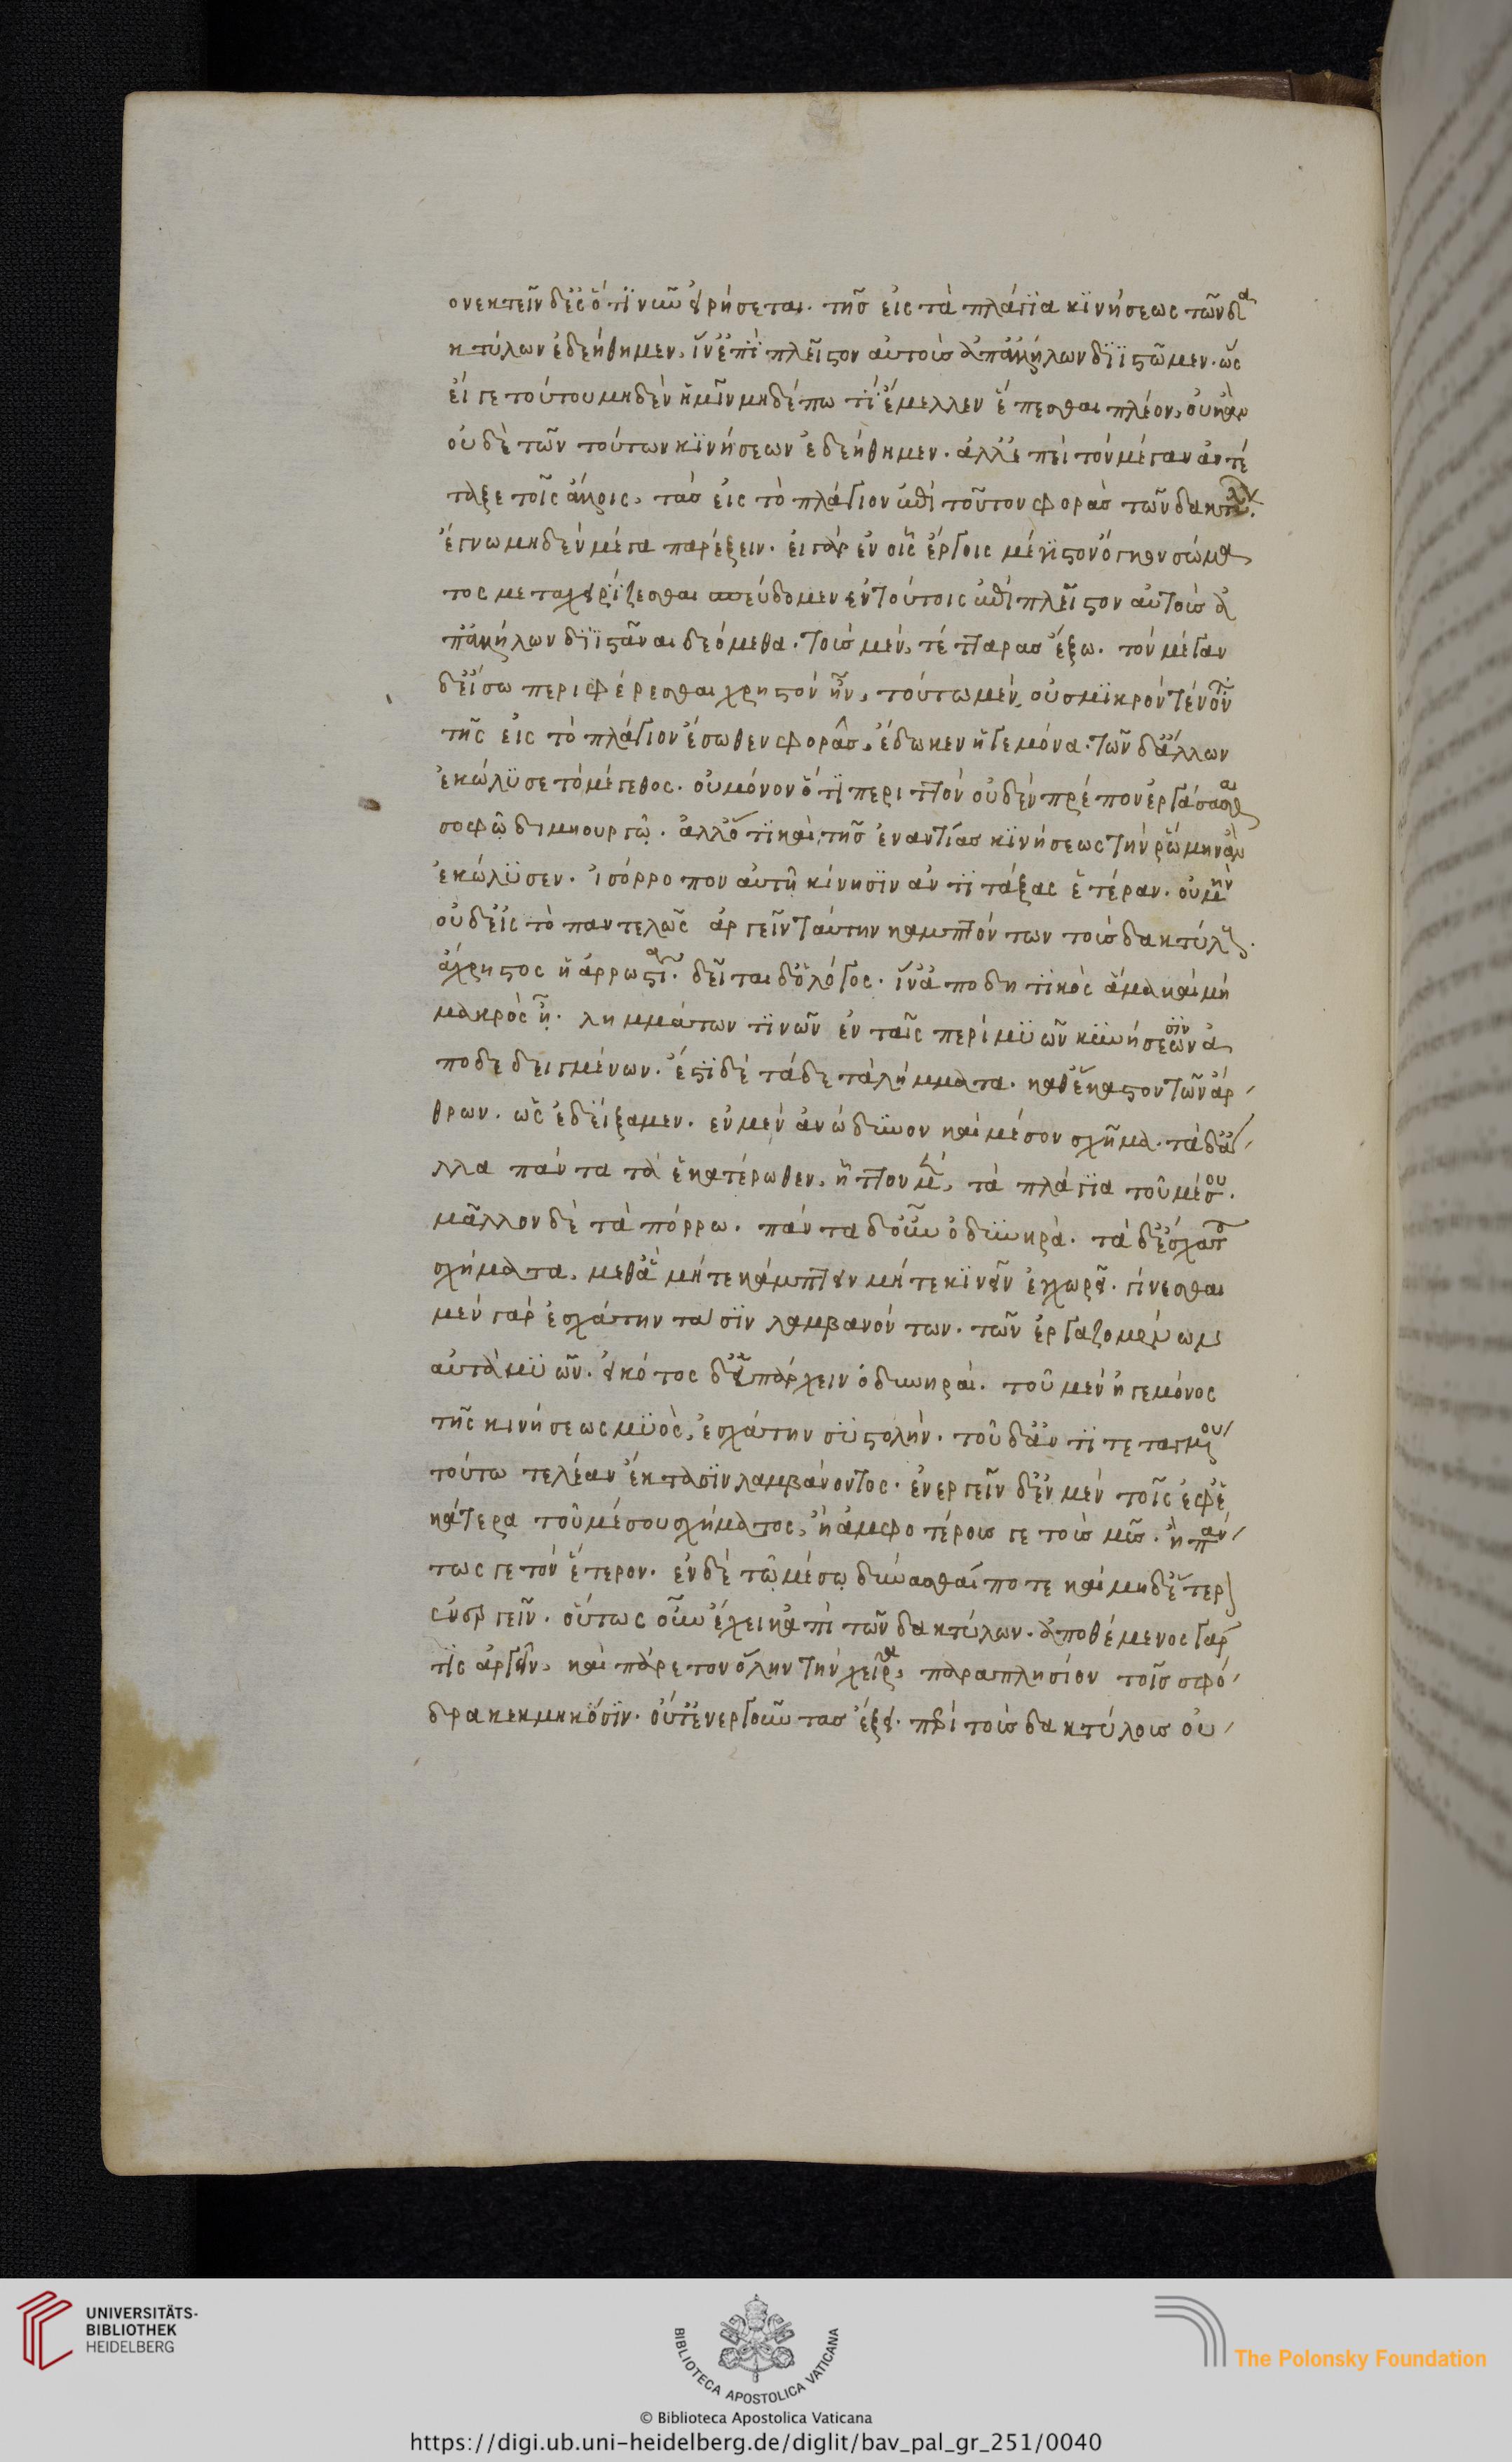 ονεκτεῖν δεῖ ὅτι νῦν εἰρήσεται. τῆς εἰς τὰ πλάγια κινήσεως τῶν δα
κτύλων ἐδεήθημεν, ἵν ἐπὶ πλεῖστον αὐτοὺς ἀπ ἀλλήλων διϊστῶμεν. ὡς
εἴ γε τούτου μηδὲν ἡμῖν μηδέπω τι ἔμελλεν ἕπεσθαι πλέον, οὐκ ἂν
οὐδὲ τῶν τούτων κινήσεων ἐδεήθημεν. ἀλλ ἐπεὶ τὸν μέγαν ἀντέ
ταξε τοῖς ἄκροις, τὰς εἰς τὸ πλάγιον ἐπὶ τοῦτον φορὰς τῶν δακτύλων.
ἔγνω μηδὲν μέγα παρέξειν. εἰ γὰρ ἐν οἷς ἔργοις μέγιστον ὄγκον σώμα
τος μεταχειρίζεσθαι σπεύδομεν ἐν τούτοις ἐπὶ πλεῖστον αὐτοὺς ἀ
π ἀλλήλων διϊστάναι δεόμεθα. τοὺς μὲν, τέτταρας ἔξω. τὸν μέγαν
δ εἴσω περιφέρεσθαι χρηστὸν ἦν, τούτω μὲν, οὐ σμικρὸν τένοντα
τῆς εἰς τὸ πλάγιον ἔσωθεν φορᾶς, ἔδωκεν ἡγεμόνα. τῶν δ ἄλλων
ἐκώλυσε τὸ μέγεθος. οὐ μόνον ὅτι περιττὸν οὐδὲν πρέπον ἐργάσασθαι
σοφῷ δημιουργῷ. ἀλλ ὅτι καὶ τῆς ἐναντίας κινήσεως τὴν ῥώμην ἂν
ἐκώλυσεν. ἰσόρροπον αὐτῇ κίνησιν ἀντιτάξας ἑτέραν. οὐ μὴν
οὐδ εἰς τὸ παντελῶς ἀργεῖν ταύτην καμπτόντων τοὺς δακτύλους.
ἄχρηστος ἡ ἀρρωστία. δεῖται δ ὁ λόγος. ἵν ἀποδεικτικὸς ἅμα καὶ μὴ
μακρὸς ᾖ. λημμάτων τινῶν ἐν ταῖς περὶ μυῶν κινήσεων ἀ
ποδεδειγμένων. ἔστι δὲ τάδε τὰ λήμματα. καθ ἕκαστον τῶν ἄρ
θρων. ὡς ἐδείξαμεν. ἓν μὲν ἀνώδυνον καὶ μέσον σχῆμα. τὰ δ ἄ
λλα πάντα τὰ ἑκατέρωθεν, ἧττον μὲν, τὰ πλάγια τοῦ μέσου.
μᾶλλον δὲ τὰ πόρρω. πάντα δ οὖν ὀδυνηρὰ. τὰ δ ἔσχατα
σχήματα, μεθ ἃ μήτε κάμπτειν μήτε κινεῖν ἐγχωρεῖ. γίνεσθαι
μὲν γὰρ ἐσχάτην τάσιν λαμβανόντων. τῶν ἐργαζομένων
αὐτὰ μυῶν. εἰκότος δ ὑπάρχειν ὀδυνηρά. τοῦ μὲν ἡγεμόνος
τῆς κινήσεως μυὸς, ἐσχάτην συστολήν. τοῦ δ ἀντιτεταγμένου
τούτω τελέαν ἔκτασιν λαμβάνοντος. ἐνεργεῖν δ ἐν μὲν τοῖς ἐφ ἑ
κάτερα τοῦ μέσου σχήματος, ἢ ἀμφοτέρους γε τοὺς μῦς. ἢ πάν
τως γε τὸν ἕτερον. ἐν δὲ τῷ μέσῳ δύνασθαί ποτε καὶ μηδ ἕτερον
ἐνεργεῖν. οὕτως οὖν ἔχει κἀπὶ τῶν δακτύλων. ἀποθέμενος γάρ
τις ἀργὴν, καὶ πάρετον ὅλην τὴν χεῖρα, παραπλησίον τοῖς σφό
δρα κεκμηκόσιν. οὔτ ἐνεργοῦντας ἕξει. περὶ τοὺς δακτύλους οὐ
UNIVERSITÄTS-
BIBLIOTHEK
HEIDELBERG
BIBLIOTECA APOSTOLICA VATICANA
The Polonsky Foundation
© Biblioteca Apostolica Vaticana
https://digi.ub.uni-heidelberg.de/diglit/bav_pal_gr_251/0040